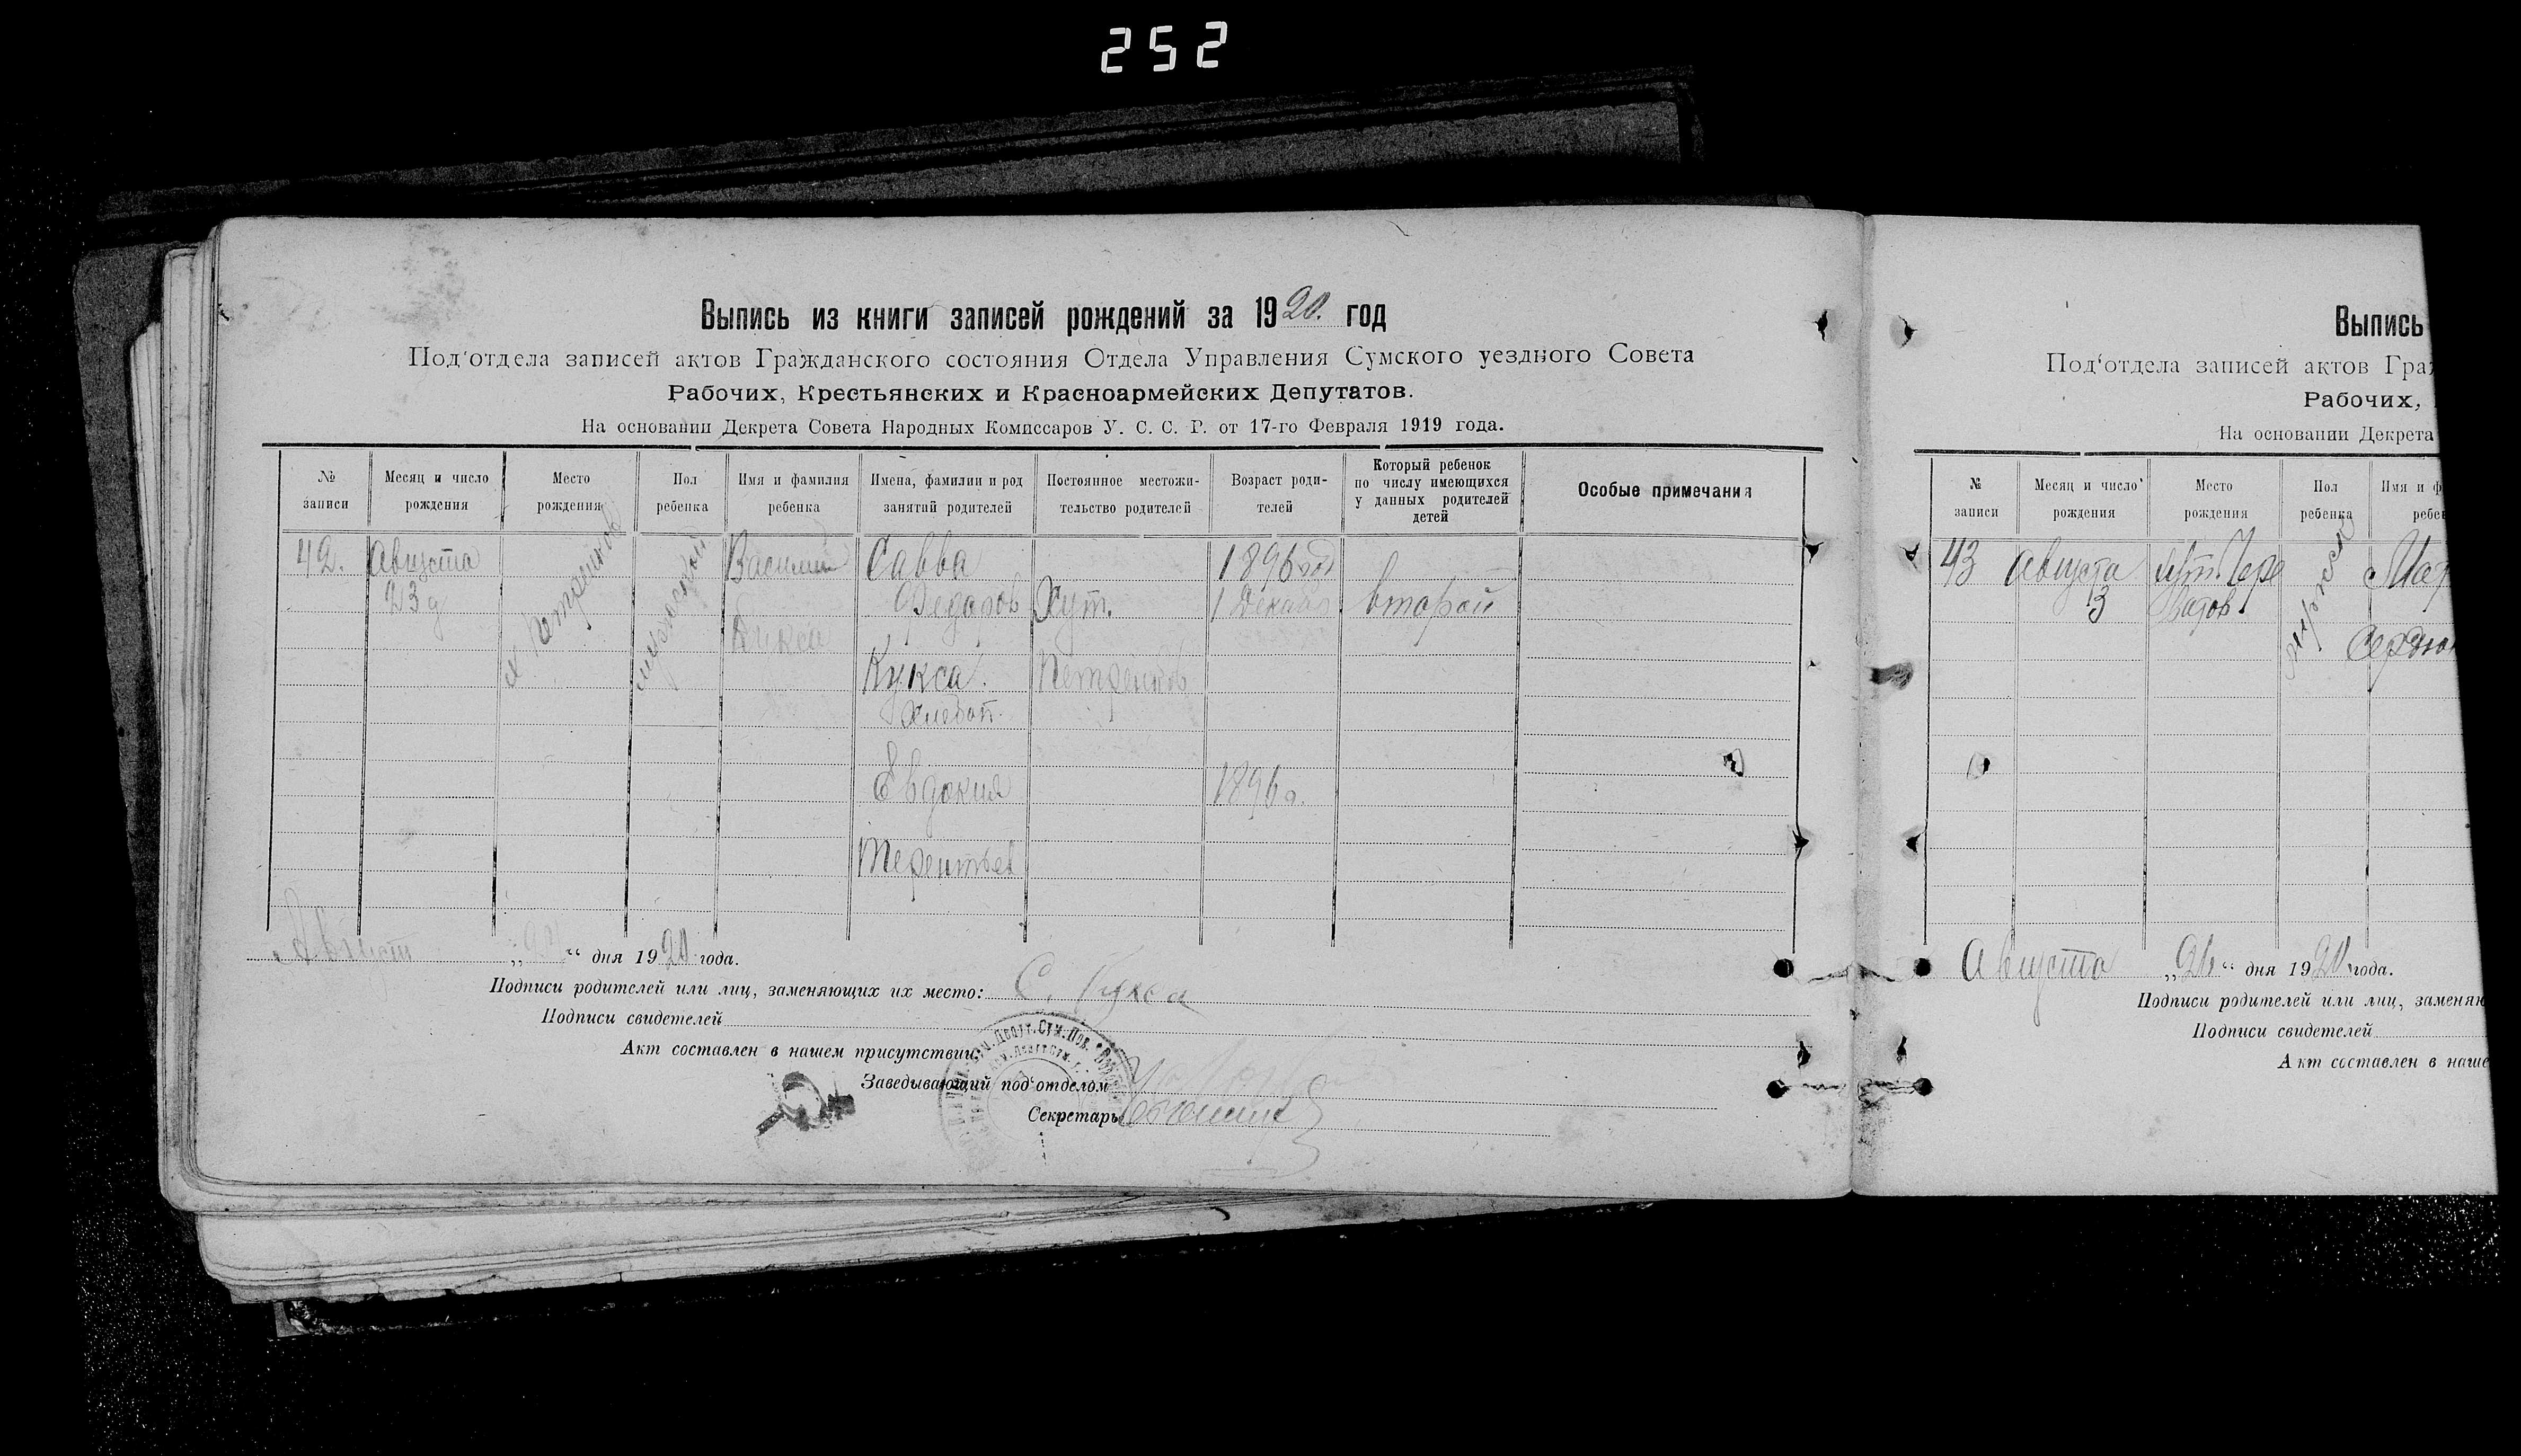 252
Выпись из книги записей рождений за 1920. год
Под'отдела записей актов Гражданского состояния Отдела Управления Сумского уездного Совета
Рабочих, Крестьянских и Красноармейских Депутатов.
На основании Декрета Совета Народных Комиссаров У. С. С. Р. от 17-го Февраля 1919 года.
№ записи
Месяц и число рождения
Место рождения
Пол ребенка
Имя и фамилия ребенка
Имена, фамилии и род занятий родителей
Постоянное местожительство родителей
Возраст родителей
Который ребенок по числу имеющихся у данных родителей детей
Особые примечания
42. Августа Василий Савва 1896 год
23 д Федоров Хут. 1 Декабр второй
х Петренков
мужской
Кукса
Кукса. Петренков
Хлебоп.
Евдокия 1896 г.
Терентьев
Август „ “ дня 1920 года.
Подписи родителей или лиц, заменяющих их место: С. Кукса
Подписи свидетелей
Акт составлен в нашем присутствии:
Заведывающий под'отделом
Секретарь
Выпись
Под'отдела записей актов Граж
Рабочих,
На основании Декрета
№ записи
Месяц и число рождения
Место рождения
Пол ребенка
Имя и ф
ребен
43 Августа хут. Чере
3 ватов
Сердюк
Августа „26“ дня 1920 года.
Подписи родителей или лиц, заменяю
Подписи свидетелей
Акт составлен в наше